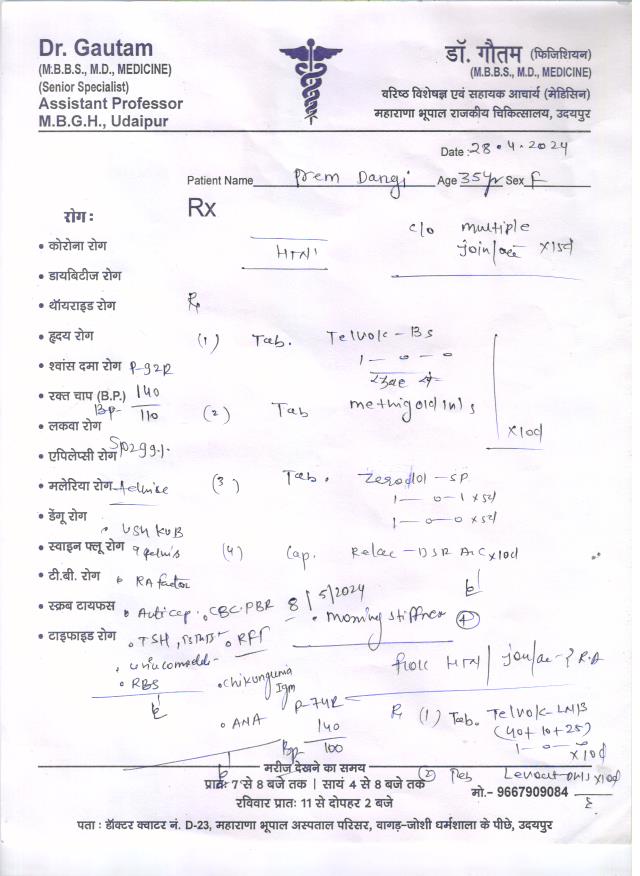 Dr. Gautam
(M.B.B.S., M.D., MEDICINE)
(Senior Specialist)
Assistant Professor
M.B.G.H., Udaipur
डॉ. गौतम (फिजिशियन)
(M.B.B.S., M.D., MEDICINE)
वरिष्ठ विशेषज्ञ एवं सहायक आचार्य (मेडिसिन)
महाराणा भूपाल राजकीय चिकित्सालय, उदयपुर
Date : 28.4.2024
Patient Name Prem Dangi Age 35yr Sex F
Rx
c/o multiple
HTN
x15d
रोग :
• कोरोना रोग
• डायबिटीज रोग
• थॉयराइड रोग
• हृदय रोग
• श्वांस दमा रोग P-92R
• रक्त चाप (B.P.) 140
BP- 110
• लकवा रोग
• एपिलेप्सी रोग
SpO2 99%
• मलेरिया रोग Advise
• डेंगू रोग
• USG KUB
• स्वाइन फ्लू रोग
• टी.बी. रोग • RA factor
• स्क्रब टायफस • Anti ccp • CBC • PBR
• टाइफाइड रोग • TSH, • RFT
• RBS
• Chikungunia
Igm
• ANA
R
(1) Tab. Telvolc-BS
1 — 0 — 0
(2) Tab
x10d
(3) Tab. Zerodol-SP
1 — 0 — 1 x5d
1 — 0 — 0 x5d
(4) Cap. Relac-DSR AC x10d
8/5/2024
• Morning stiffness +
HTN
P-74R
140
BP- 100
R (1) Tab. Telvolc-LN/B
(40+10+25)
1 — 0 — x10d
(2) x10d
मरीज देखने का समय
प्रातः 7 से 8 बजे तक | सायं 4 से 8 बजे तक
रविवार प्रातः 11 से दोपहर 2 बजे
मो.- 9667909084
पता : डॉक्टर क्वाटर नं. D-23, महाराणा भूपाल अस्पताल परिसर, वागड़-जोशी धर्मशाला के पीछे, उदयपुर